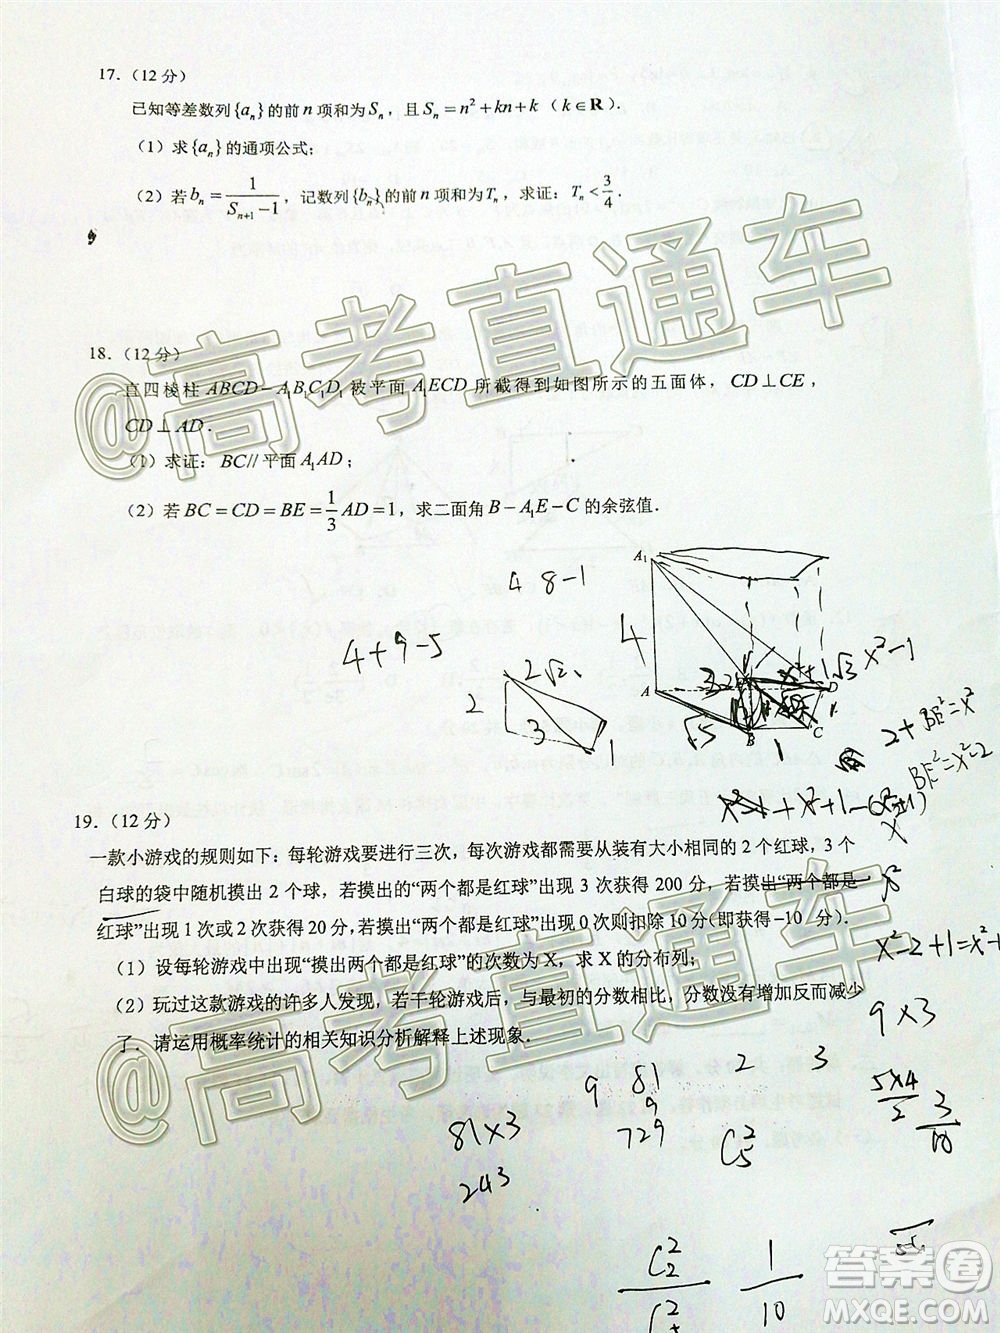 17.（12 分）
已知等差数列{aₙ}的前 n 项和为 Sₙ，且 Sₙ = n² + kn + k（k∈R）．
（1）求{aₙ}的通项公式；
（2）若 bₙ = 1/(Sₙ₊₁ − 1)，记数列{bₙ}的前 n 项和为 Tₙ，求证：Tₙ < 3/4．
@高考直通车
18.（12 分）
直四棱柱 ABCD − A₁B₁C₁D₁ 被平面 A₁ECD 所截得到如图所示的五面体，CD⊥CE，
CD⊥AD．
（1）求证：BC// 平面 A₁AD；
（2）若 BC = CD = BE = 1/3 AD = 1，求二面角 B − A₁E − C 的余弦值．
A₁
4 8-1
4+9-5
4
2√2
2
3
1
A
D
B
C
√5
1
√3
x²-1
2+BE²=x²
BE²=x²-2
19.（12 分）
一款小游戏的规则如下：每轮游戏要进行三次，每次游戏都需要从装有大小相同的 2 个红球，3 个
白球的袋中随机摸出 2 个球，若摸出的“两个都是红球”出现 3 次获得 200 分，若摸出“两个都是
红球”出现 1 次或 2 次获得 20 分，若摸出“两个都是红球”出现 0 次则扣除 10 分（即获得-10 分）．
（1）设每轮游戏中出现“摸出两个都是红球”的次数为 X，求 X 的分布列；
（2）玩过这款游戏的许多人发现，若干轮游戏后，与最初的分数相比，分数没有增加反而减少
了．请运用概率统计的相关知识分析解释上述现象．
@高考直通车
x²-2+1=x²-1
9×3
9 81 2 3
9
729
81×3
243
C₅²
5×4/2
3/10
C₂²
1/10
答案圈
MXQE.COM